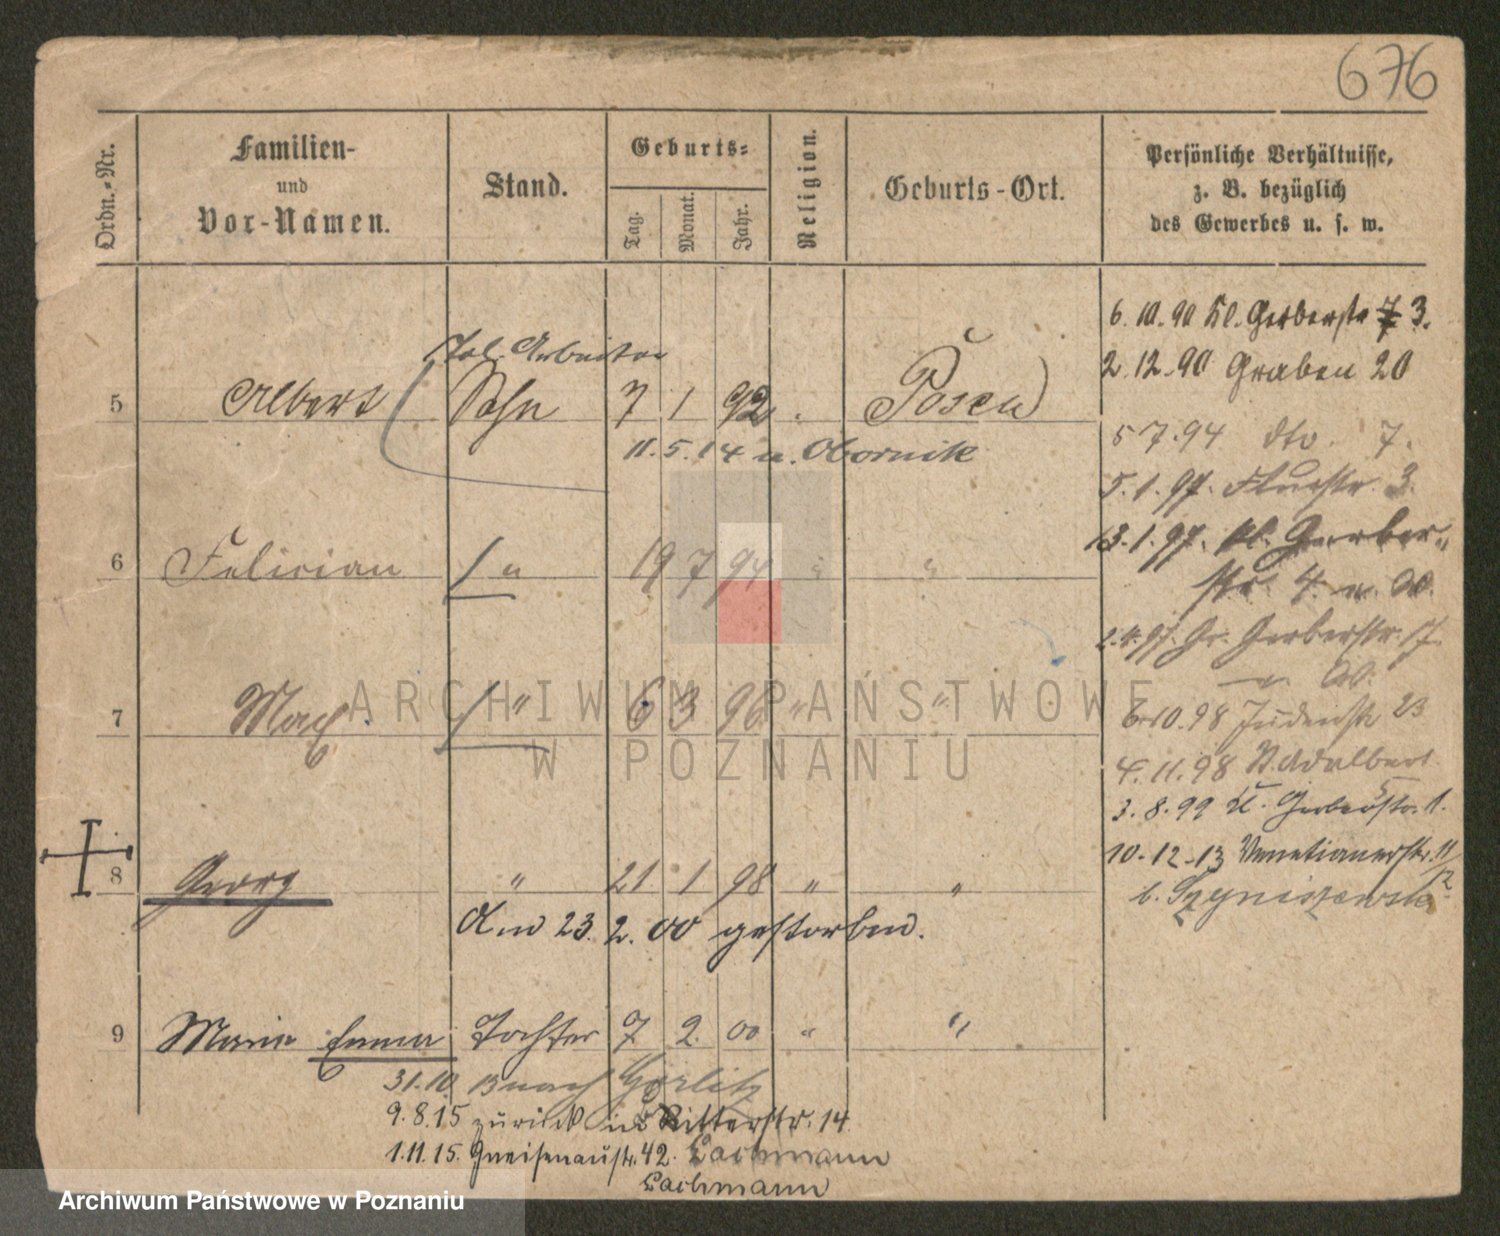 676
Ordn.-Nr.
Familien-
und
Vor-Namen.
Stand.
Geburts-
Tag. Monat. Jahr.
Religion.
Geburts-Ort.
Persönliche Verhältnisse,
z. B. bezüglich
des Gewerbes u. s. w.
Arbeiter
5 Albert Sohn 7 1 92 Posen
11.5.14 n. Obornik
6 Felician " 19 7 94 " "
7 Max " 6 3 96 " "
8 Georg " 21 1 98 " "
Am 23. 2. 00 gestorben.
9 Marie Emma Tochter 7 2. 00 " "
31.10 nach Görlitz
9.8.15 zurück Ritterstr. 14
1.11.15. Gneisenaustr. 42. Lachmann
Lachmann
6.10.90 Kl. Gerberstr 7 3.
2.12.90 Graben 20
5 7.94 dto. 7.
5.1.97. 3.
13.1.97. Kl. Gerber-
str. 4. n. W.
2.4.97. Gr. Gerberstr. 17
6.10.98 Judenstr 23
4.11.98 St Adalbert
5
3.8.99 Kl. Gerberstr. 1.
10-12-13 Venetianerstr. 11/
12
b.
ARCHIWUM PAŃSTWOWE
W POZNANIU
Archiwum Państwowe w Poznaniu